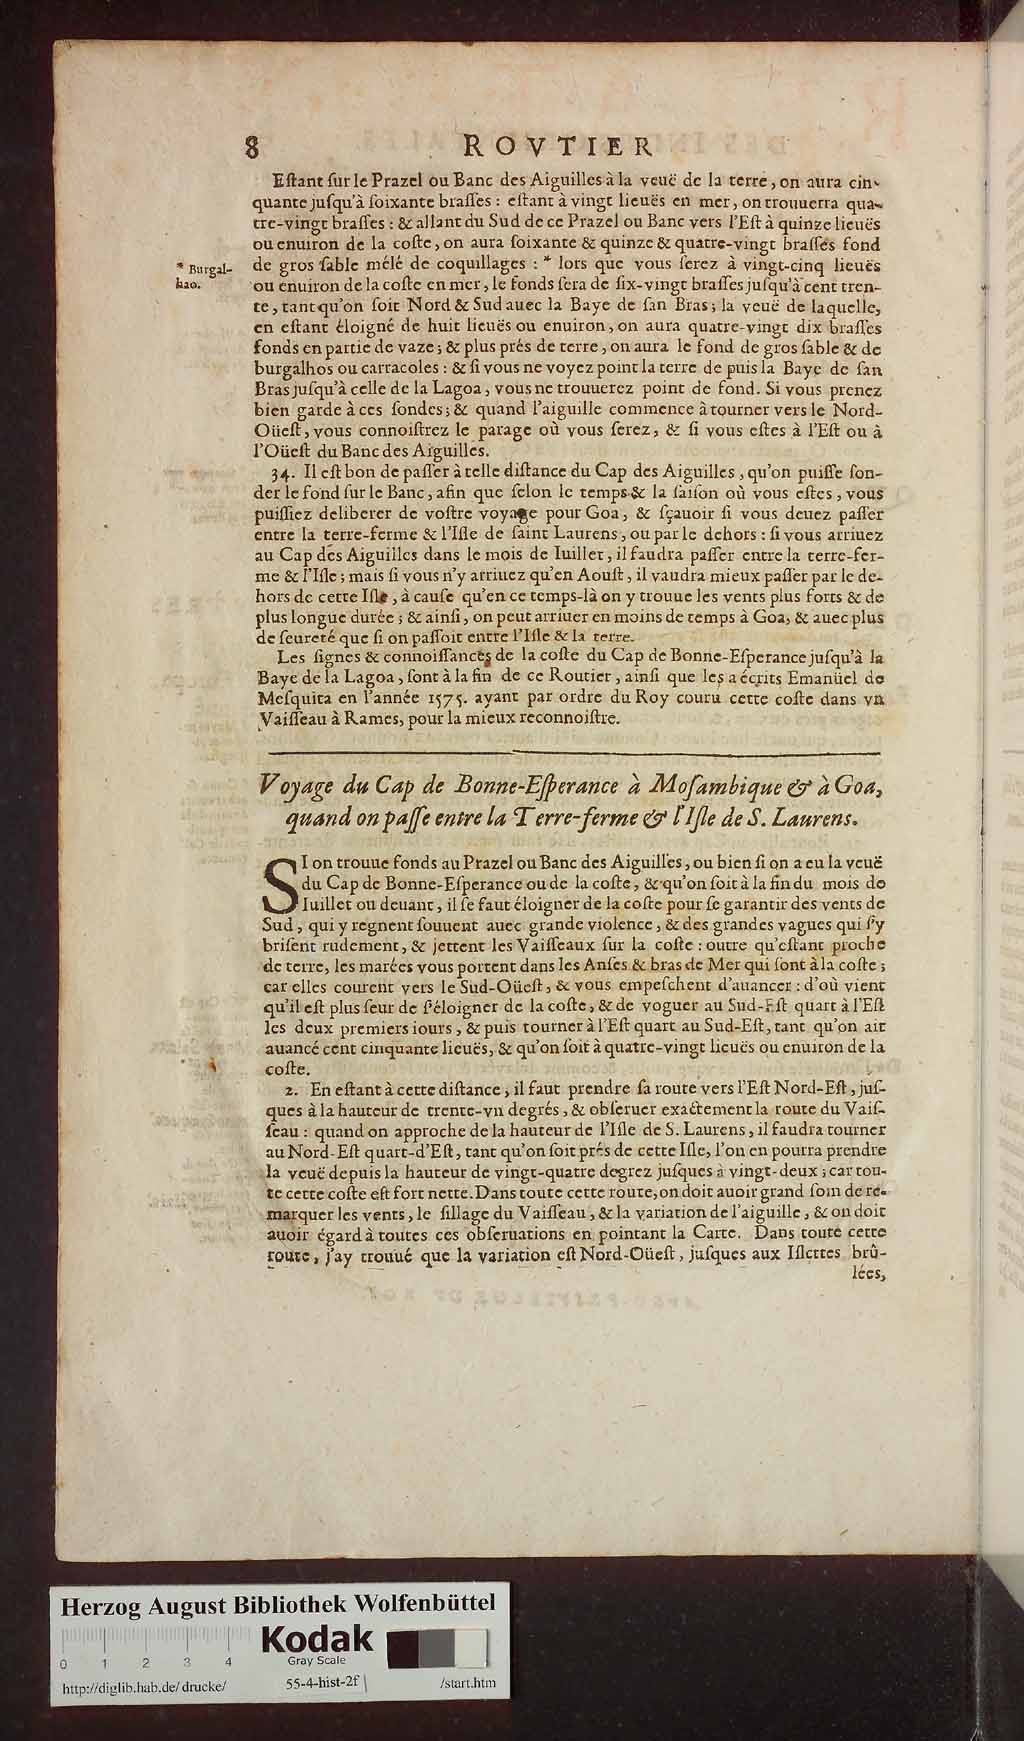 8 ROVTIER
Eſtant ſur le Prazel ou Banc des Aiguilles à la veuë de la terre, on aura cin-
quante juſqu'à ſoixante braſſes : eſtant à vingt lieuës en mer, on trouuerra qua-
tre-vingt braſſes : & allant du Sud de ce Prazel ou Banc vers l'Eſt à quinze lieuës
ou enuiron de la coſte, on aura ſoixante & quinze & quatre-vingt braſſes fond
de gros ſable mélé de coquillages : * lors que vous ſerez à vingt-cinq lieuës
* Burgal-
hao.
ou enuiron de la coſte en mer, le fonds ſera de ſix-vingt braſſes juſqu'à cent tren-
te, tant qu'on ſoit Nord & Sud auec la Baye de ſan Bras; la veuë de laquelle,
en eſtant éloigné de huit lieuës ou enuiron, on aura quatre-vingt dix braſſes
fonds en partie de vaze; & plus prés de terre, on aura le fond de gros ſable & de
burgalhos ou carracoles : & ſi vous ne voyez point la terre de puis la Baye de ſan
Bras juſqu'à celle de la Lagoa, vous ne trouuerez point de fond. Si vous prenez
bien garde à ces ſondes; & quand l'aiguille commence à tourner vers le Nord-
Oüeſt, vous connoiſtrez le parage où vous ſerez, & ſi vous eſtes à l'Eſt ou à
l'Oüeſt du Banc des Aiguilles.
34. Il eſt bon de paſſer à telle diſtance du Cap des Aiguilles, qu'on puiſſe ſon-
der le fond ſur le Banc, afin que ſelon le temps & la ſaiſon où vous eſtes, vous
puiſſiez deliberer de voſtre voyage pour Goa, & ſçauoir ſi vous deuez paſſer
entre la terre-ferme & l'Iſle de ſaint Laurens, ou par le dehors : ſi vous arriuez
au Cap des Aiguilles dans le mois de Iuillet, il faudra paſſer entre la terre-fer-
me & l'Iſle; mais ſi vous n'y arriuez qu'en Aouſt, il vaudra mieux paſſer par le de-
hors de cette Iſle, à cauſe qu'en ce temps-là on y trouue les vents plus forts & de
plus longue durée; & ainſi, on peut arriuer en moins de temps à Goa, & auec plus
de ſeureté que ſi on paſſoit entre l'Iſle & la terre.
Les ſignes & connoiſſances de la coſte du Cap de Bonne-Eſperance juſqu'à la
Baye de la Lagoa, ſont à la fin de ce Routier, ainſi que les a écrits Emanüel de
Meſquita en l'année 1575. ayant par ordre du Roy couru cette coſte dans vn
Vaiſſeau à Rames, pour la mieux reconnoiſtre.
Voyage du Cap de Bonne-Eſperance à Moſambique & à Goa,
quand on paſſe entre la Terre-ferme & l'Iſle de S. Laurens.
SI on trouue fonds au Prazel ou Banc des Aiguilles, ou bien ſi on a eu la veuë
du Cap de Bonne-Eſperance ou de la coſte, & qu'on ſoit à la fin du mois de
Iuillet ou deuant, il ſe faut éloigner de la coſte pour ſe garantir des vents de
Sud, qui y regnent ſouuent auec grande violence, & des grandes vagues qui ſ'y
briſent rudement, & jettent les Vaiſſeaux ſur la coſte : outre qu'eſtant proche
de terre, les marées vous portent dans les Anſes & bras de Mer qui ſont à la coſte;
car elles courent vers le Sud-Oüeſt, & vous empeſchent d'auancer : d'où vient
qu'il eſt plus ſeur de ſ'éloigner de la coſte, & de voguer au Sud-Eſt quart à l'Eſt
les deux premiers iours, & puis tourner à l'Eſt quart au Sud-Eſt, tant qu'on ait
auancé cent cinquante lieuës, & qu'on ſoit à quatre-vingt lieuës ou enuiron de la
coſte.
2. En eſtant à cette diſtance, il faut prendre ſa route vers l'Eſt Nord-Eſt, juſ-
ques à la hauteur de trente-vn degrés, & obſeruer exactement la route du Vaiſ-
ſeau : quand on approche de la hauteur de l'Iſle de S. Laurens, il faudra tourner
au Nord-Eſt quart-d'Eſt, tant qu'on ſoit prés de cette Iſle, l'on en pourra prendre
la veuë depuis la hauteur de vingt-quatre degrez juſques à vingt-deux; car tou-
te cette coſte eſt fort nette. Dans toute cette route, on doit auoir grand ſoin de re-
marquer les vents, le ſillage du Vaiſſeau, & la variation de l'aiguille, & on doit
auoir égard à toutes ces obſeruations en pointant la Carte. Dans toute cette
route, j'ay trouué que la variation eſt Nord-Oüeſt, juſques aux Iſlettes brû-
lées,
Herzog August Bibliothek Wolfenbüttel
Kodak
Gray Scale
0 1 2 3 4
http://diglib.hab.de/drucke/ 55-4-hist-2f /start.htm